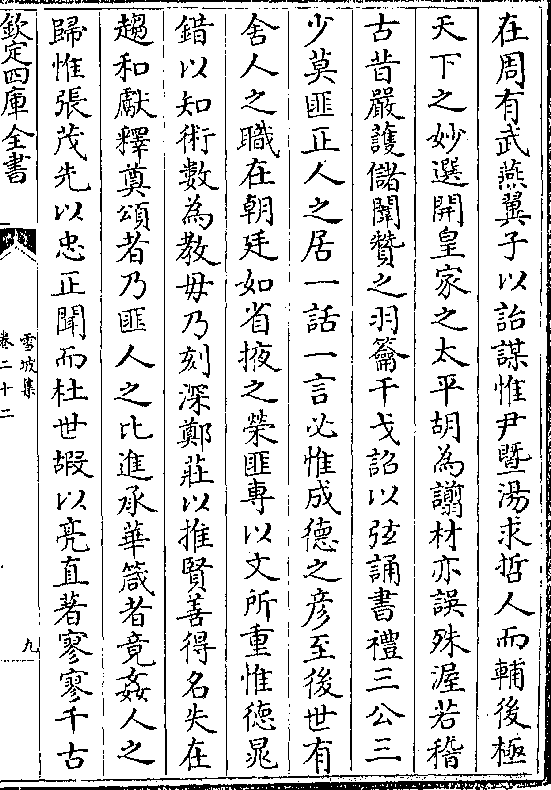 在周有武燕翼子以詒謀惟尹暨湯求哲人而輔後極
天下之妙選開皇家之太平胡為謭材亦誤殊渥若稽
古昔嚴護儲闈贊之羽籥干戈詔以弦誦書禮三公三
少莫匪正人之居一話一言必惟成德之彦至後世有
舍人之職在朝廷如省掖之榮匪専以文所重惟德晁
錯以知術數為教毋乃刻深鄭莊以推賢善得名失在
趨和獻釋奠頌者乃匪人之比進承華箴者竟姦人之
歸惟張茂先以忠正聞而杜世嘏以亮直著寥寥千古
欽定四庫全書
雪坡集
卷二十二
九